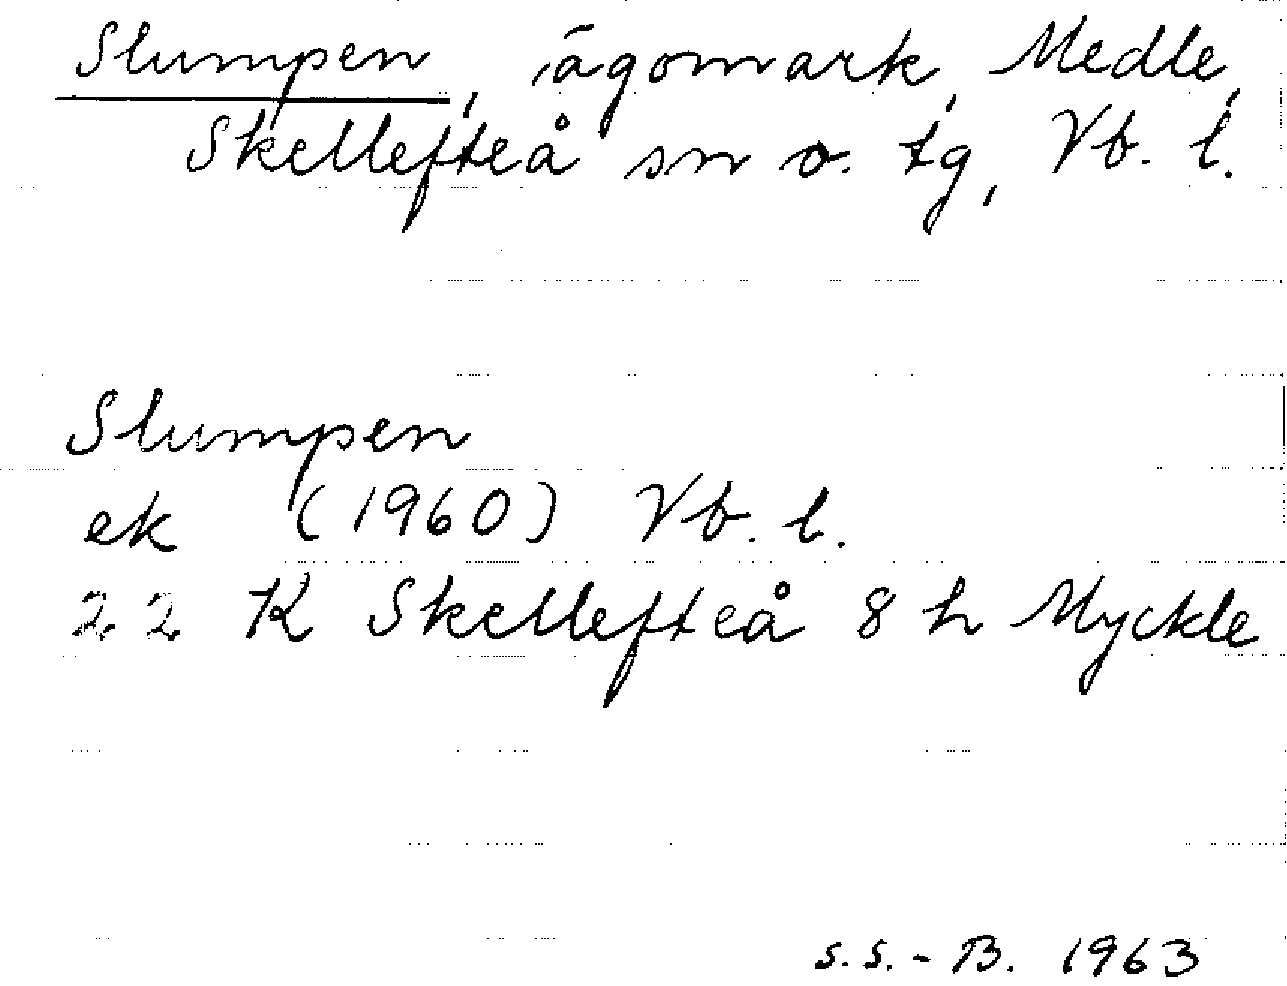 Slumpen, ägomark, Medle,
Skellefteå sn o. tg, Vb. l.
Slumpen
ek (1960) Vb. l.
22 K Skellefteå 8 h Myckle
S.S.-B. 1963